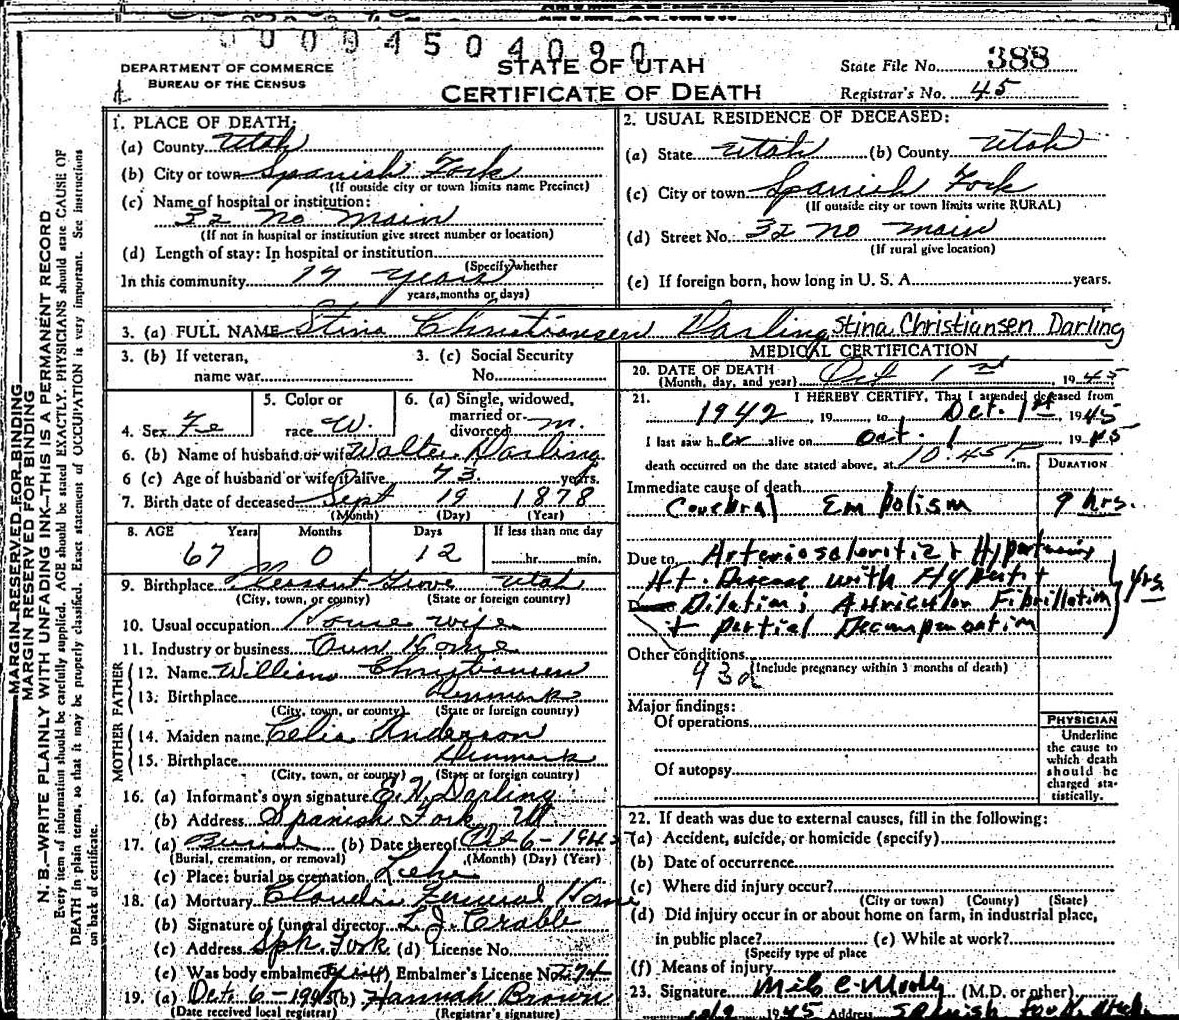 0 0 0 9 4 5 0 4 0 9 0
STATE OF UTAH
CERTIFICATE OF DEATH
DEPARTMENT OF COMMERCE
BUREAU OF THE CENSUS
State File No. 388
Registrar's No. 45
MARGIN RESERVED FOR BINDING
MARGIN RESERVED FOR BINDING
N. B.—WRITE PLAINLY WITH UNFADING INK—THIS IS A PERMANENT RECORD
Every item of information should be carefully supplied. AGE should be stated EXACTLY. PHYSICIANS should state CAUSE OF
DEATH in plain terms, so that it may be properly classified. Exact statement of OCCUPATION is very important. See instructions
on back of certificate.
1. PLACE OF DEATH:
(a) County Utah
(b) City or town Spanish Fork
(If outside city or town limits name Precinct)
(c) Name of hospital or institution:
32 No Main
(If not in hospital or institution give street number or location)
(d) Length of stay: In hospital or institution
(Specify whether
In this community 17 years
years, months or days)
2. USUAL RESIDENCE OF DECEASED:
(a) State Utah (b) County Utah
(c) City or town Spanish Fork
(If outside city or town limits write RURAL)
(d) Street No. 32 No Main
(If rural give location)
(e) If foreign born, how long in U. S. A. years.
3. (a) FULL NAME Stina Christiansen Darling Stina Christiansen Darling
3. (b) If veteran, name war
3. (c) Social Security No.
4. Sex Fe
5. Color or race W.
6. (a) Single, widowed, married or divorced m.
6. (b) Name of husband or wife Walter Darling
6 (c) Age of husband or wife if alive 73 years.
7. Birth date of deceased Sept 19 1878
(Month) (Day) (Year)
8. AGE Years Months Days If less than one day
67 0 12 hr. min.
9. Birthplace Pleasant Grove Utah
(City, town, or county) (State or foreign country)
10. Usual occupation House wife
11. Industry or business Own Home
FATHER
12. Name William Christiansen
13. Birthplace Denmark
(City, town, or county) (State or foreign country)
MOTHER
14. Maiden name Celia Anderson
15. Birthplace Denmark
(City, town, or county) (State or foreign country)
16. (a) Informant's own signature E. H. Darling
(b) Address Spanish Fork Ut
17. (a) Burial (b) Date thereof Oct 6-1945
(Burial, cremation, or removal) (Month) (Day) (Year)
(c) Place: burial or cremation Lehi
18. (a) Mortuary Claudin Funeral Home
(b) Signature of funeral director L. J. Crabb
(c) Address Sph. Fork (d) License No.
(e) Was body embalmed Embalmer's License No. 274
19. (a) Oct. 6-1945 (b) Hannah Brown
(Date received local registrar) (Registrar's signature)
MEDICAL CERTIFICATION
20. DATE OF DEATH
(Month, day, and year) Oct 1st, 1945
21. I HEREBY CERTIFY, That I attended deceased from
1942, 19 to Oct. 1st 1945
I last saw her alive on Oct. 1 1945
death occurred on the date stated above, at 10:45 P m.
DURATION
Immediate cause of death
Cerebral Embolism 9 hrs.
Due to Arteriosclerotic & Hypertensive
Ht. Disease with Hypert +
Dilation; Auricular Fibrillation yrs
+ Partial Decompensation
Other conditions
(Include pregnancy within 3 months of death)
93d
Major findings:
Of operations
Of autopsy
PHYSICIAN
Underline
the cause to
which death
should be
charged sta-
tistically.
22. If death was due to external causes, fill in the following:
(a) Accident, suicide, or homicide (specify)
(b) Date of occurrence
(c) Where did injury occur?
(City or town) (County) (State)
(d) Did injury occur in or about home on farm, in industrial place,
in public place? (e) While at work?
(Specify type of place
(f) Means of injury
23. Signature Milo C. Moody (M.D. or other)
10/2 1945 Address Spanish Fork, Utah